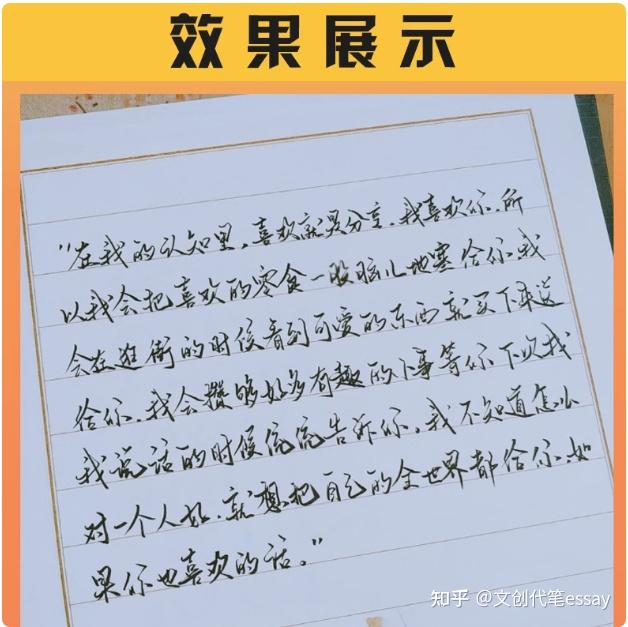 效果展示
“在我的认知里，喜欢就是分享，我喜欢你，所
以我会把喜欢的零食一股脑儿地塞给你，我
会在逛街的时候看到可爱的东西就买下来送
给你，我会攒够好多有趣的小事等你下次找
我说话的时候统统告诉你，我不知道怎么
对一个人好，就想把自己的全世界都给你，如
果你也喜欢的话。”
知乎 @文创代笔essay